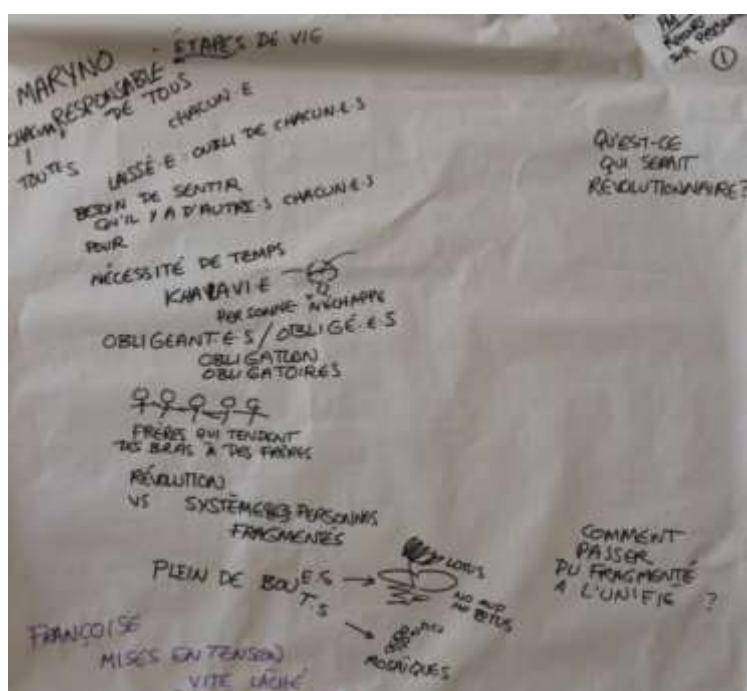 MARYNO - ÉTAPES DE VIE
RESPONSABLE
DE TOUS
CHACUN·E
TOUTES
LAISSÉ·E : OUBLI DE CHACUN·E·S
BESOIN DE SENTIR
QU'IL Y A D'AUTRE·S CHACUN·E·S
POUR
NÉCESSITÉ DE TEMPS
PERSONNE N'ÉCHAPPE
OBLIGEANT·E·S / OBLIGÉ·E·S
OBLIGATION
OBLIGATOIRES
FRÈRES QUI TENDENT
DES BRAS À DES FRÈRES
RÉVOLUTION
VS SYSTÈMES PERSONNES
FRAGMENTÉS
PLEIN DE BOUE·S
T·S
LOTUS
NO MUD
NO LOTUS
MOSAÏQUES
FRANÇOISE
MISES EN TENSION
VITE LÂCHÉ
SUR PRESENT
1
QU'EST-CE
QUI SERAIT
RÉVOLUTIONNAIRE?
COMMENT
PASSER
DU FRAGMENTÉ
A L'UNIFIÉ ?